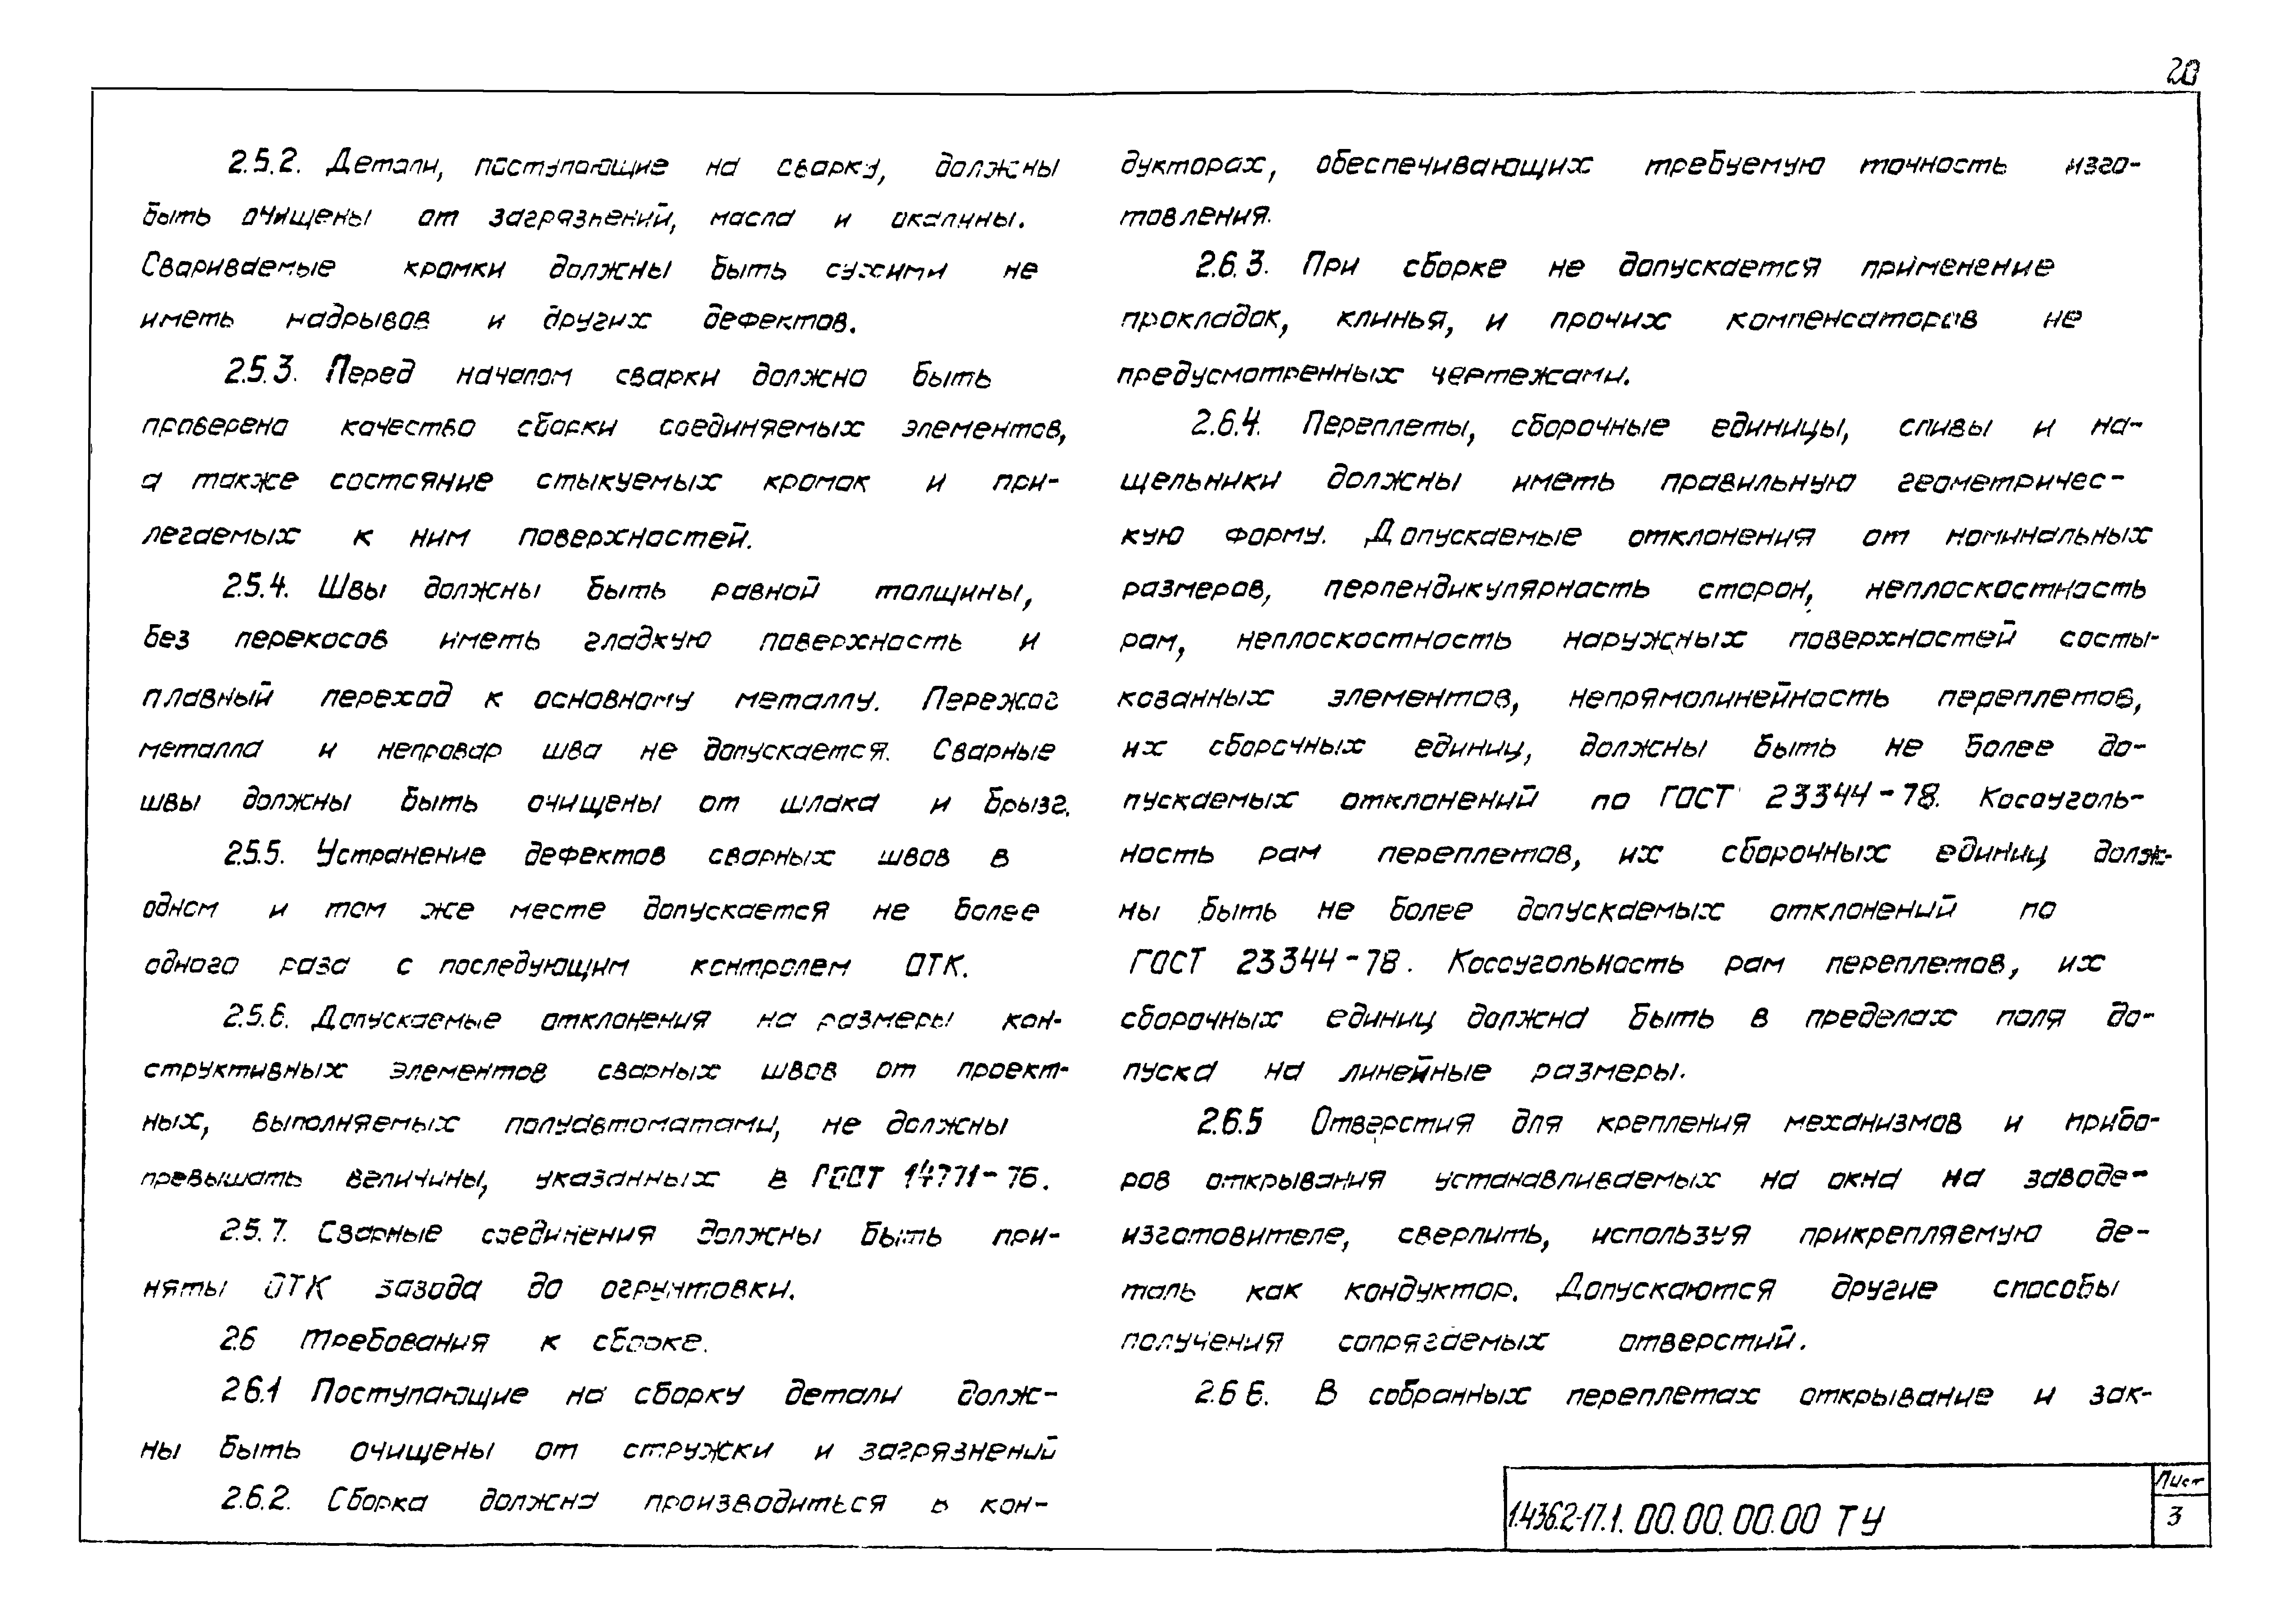 20
2.5.2. Детали, поступающие на сварку, должны
быть очищены от загрязнений, масла и окалины.
Свариваемые кромки должны быть сухими не
иметь надрывов и других дефектов.
2.5.3. Перед началом сварки должно быть
проверено качество сборки соединяемых элементов,
а также состояние стыкуемых кромок и при-
легаемых к ним поверхностей.
2.5.4. Швы должны быть равной толщины,
без перекосов иметь гладкую поверхность и
плавный переход к основному металлу. Пережог
металла и непровар шва не допускается. Сварные
швы должны быть очищены от шлака и брызг.
2.5.5. Устранение дефектов сварных швов в
одном и том же месте допускается не более
одного раза с последующим контролем ОТК.
2.5.6. Допускаемые отклонения на размеры кон-
структивных элементов сварных швов от проект-
ных, выполняемых полуавтоматами, не должны
превышать величины, указанных в ГОСТ 14771-76.
2.5.7. Сварные соединения должны быть при-
няты ОТК завода до огрунтовки.
2.6 Требования к сборке.
2.6.1 Поступающие на сборку детали долж-
ны быть очищены от стружки и загрязнений
2.6.2. Сборка должна производиться в кон-
дукторах, обеспечивающих требуемую точность изго-
товления.
2.6.3. При сборке не допускается применение
прокладок, клинья, и прочих компенсаторов не
предусмотренных чертежами.
2.6.4. Переплеты, сборочные единицы, сливы и на-
щельники должны иметь правильную геометричес-
кую форму. Допускаемые отклонения от номинальных
размеров, перпендикулярность сторон, неплоскостность
рам, неплоскостность наружных поверхностей состы-
кованных элементов, непрямолинейность переплетов,
их сборочных единиц, должны быть не более до-
пускаемых отклонений по ГОСТ 23344-78. Косоуголь-
ность рам переплетов, их сборочных единиц долж-
ны быть не более допускаемых отклонений по
ГОСТ 23344-78. Косоугольность рам переплетов, их
сборочных единиц должна быть в пределах поля до-
пуска на линейные размеры.
2.6.5 Отверстия для крепления механизмов и прибо-
ров открывания устанавливаемых на окна на заводе-
изготовителе, сверлить, используя прикрепляемую де-
таль как кондуктор. Допускаются другие способы
получения сопрягаемых отверстий.
2.6 6. В собранных переплетах открывание и зак-
1.436.2-17.1. 00.00.00.00 ТУ
Лист
3